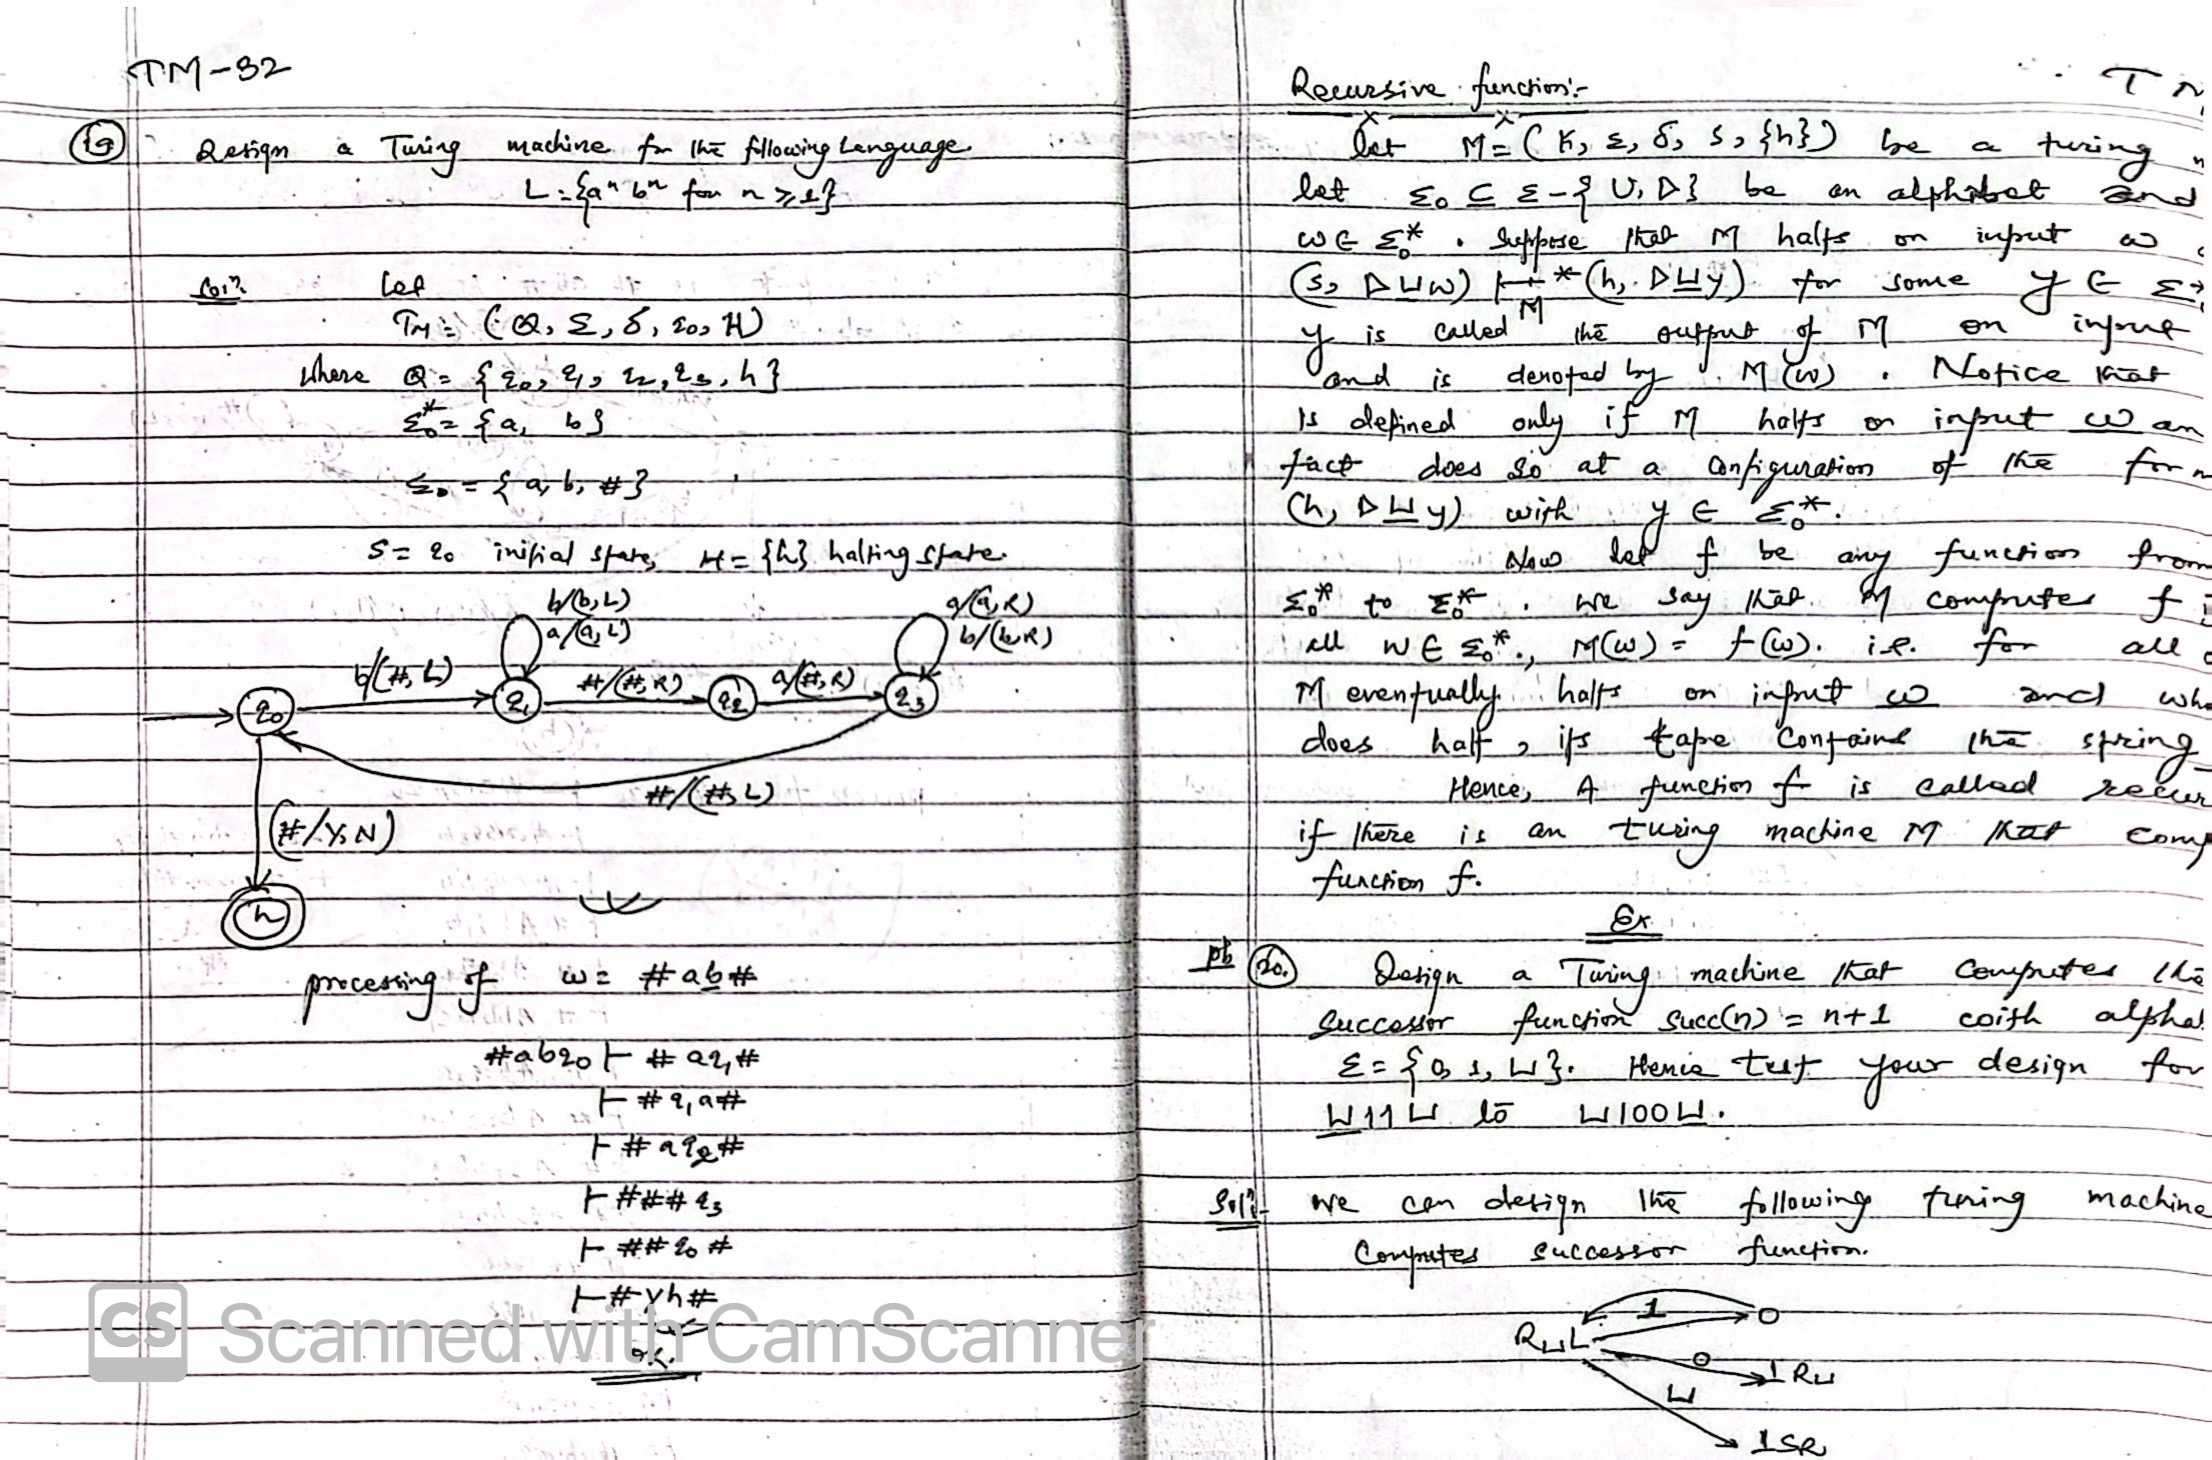 TM-32
19 Design a Turing machine for the following Language.
L = {aⁿ bⁿ for n ≥ 1}
Solⁿ. Let
TM = (Q, Σ, δ, q0, H)
Where Q = {q0, q1, q2, q3, h}
Σ0* = {a, b}
Σ0 = {a, b, #}
S = q0 initial state, H = {h} halting state.
b/(b,L)
a/(a,L)
a/(a,R)
b/(b,R)
b/(#,L) #/(#,R) a/(#,R)
q0 q1 q2 q3
#/(#,L)
(#/Y,N)
h
processing of w = #ab#
#abq0 ⊢ #aq1#
⊢ #q1a#
⊢ #aq2#
⊢ ###q3
⊢ ##q0#
⊢ #Yh#
OK.
CS Scanned with CamScanner
Recursive function:-
let M = (K, Σ, δ, s, {h}) be a turing
let Σ0 ⊆ Σ-{⊔, ▷} be an alphabet and
w ∈ Σ0*. Suppose that M halts on input w
(s, ▷⊔w) ⊢M* (h, ▷⊔y) for some y ∈ Σ
y is called the output of M on input
and is denoted by M(w). Notice that
is defined only if M halts on input w an
fact does so at a configuration of the form
(h, ▷⊔y) with y ∈ Σ0*.
Now let f be any function from
Σ0* to Σ0*. we say that M computes f i
all w ∈ Σ0*, M(w) = f(w). i.e. for all
M eventually halts on input w and whe
does halt, its tape contains the string
Hence, A function f is called recur
if there is an turing machine M that comp
function f.
Ex
pb 20. Design a Turing machine that computes the
successor function succ(n) = n+1 with alpha
Σ = {0, 1, ⊔}. Hence test your design for
⊔11⊔ to ⊔100⊔.
Solⁿ:- We can design the following turing machine
Computes successor function.
1 0
R⊔L
0 1R⊔
⊔
1SR